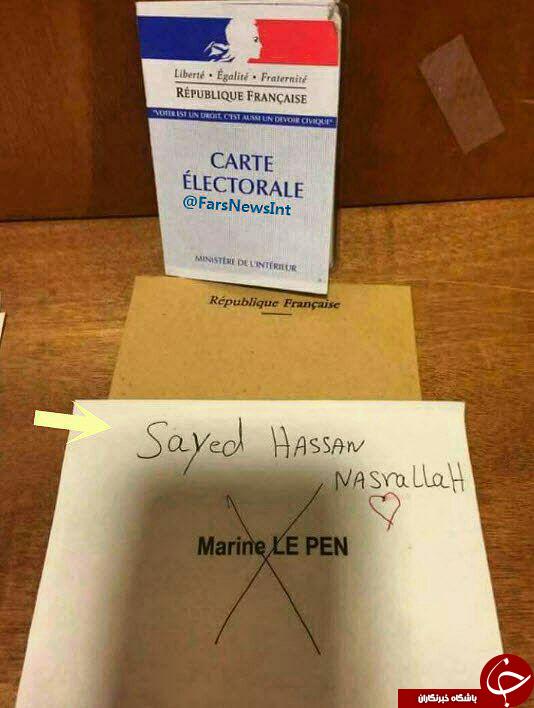 Liberté • Égalité • Fraternité
RÉPUBLIQUE FRANÇAISE
"VOTER EST UN DROIT, C'EST AUSSI UN DEVOIR CIVIQUE"
CARTE
ÉLECTORALE
@FarsNewsInt
MINISTÈRE DE L'INTÉRIEUR
République Française
Sayed HASSAN
NASrallaH
Marine LE PEN
باشگاه خبرنگاران